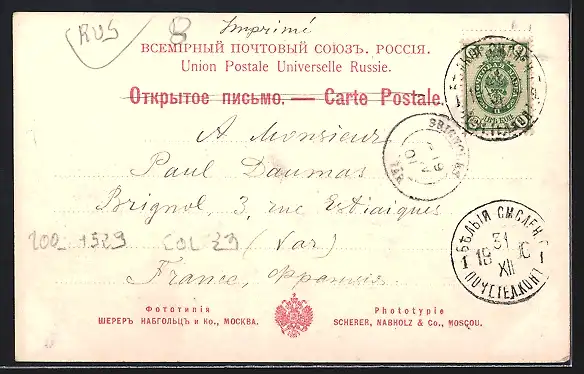 RUS
8
Imprimé
ВСЕМІРНЫЙ ПОЧТОВЫЙ СОЮЗЪ. РОССІЯ.
Union Postale Universelle Russie.
Открытое письмо. — Carte Postale.
A Monsieur
Paul Daumas
Brignol, 3, rue Estiaiques
(Var)
France, Франція
200 1529 COL 23
БѢЛЫЙ СМСЛЕН
31
19 10
XII
1 1
ПОЧ.ТЕЛ.КОНТ
VAR
Фототипія
ШЕРЕРЪ НАБГОЛЬЦЪ и Ко., МОСКВА.
Phototypie
SCHERER, NABHOLZ & Co., MOSCOU.